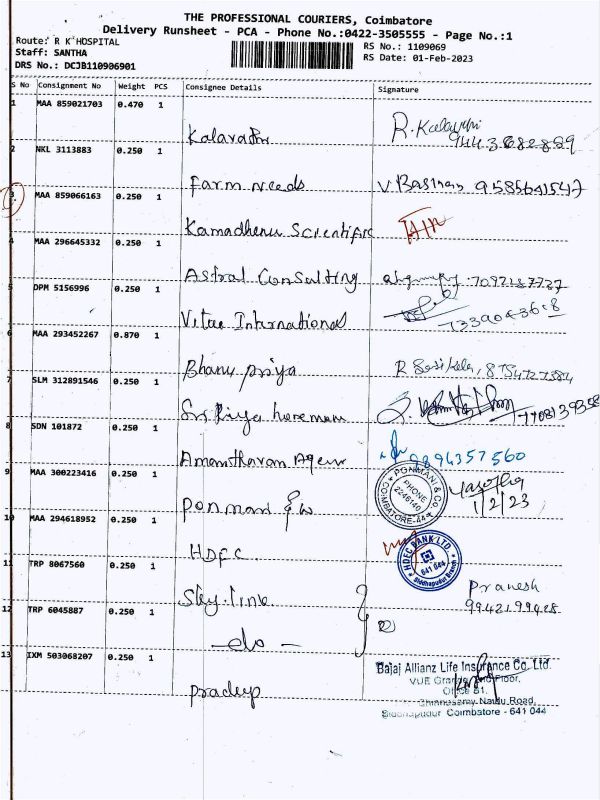 THE PROFESSIONAL COURIERS, Coimbatore
Delivery Runsheet - PCA - Phone No.:0422-3505555 - Page No.:1
Route: R K HOSPITAL
RS No.: 1109069
Staff: SANTHA
RS Date: 01-Feb-2023
DRS No.: DCJB110906901
S No Consignment No Weight PCS Consignee Details Signature
1 MAA 859021703 0.470 1
Kalavathi R. Kalavathi
9443682829
2 NKL 3113883 0.250 1
Farm Needs 9585641547
3 MAA 859066163 0.250 1
Kamadhenu Scientific
4 MAA 296645332 0.250 1
Astral Consulting 7092187737
5 DPM 5156996 0.250 1
Vitae International
7339043618
6 MAA 293452267 0.870 1
Bhanu Priya
7 SLM 312891546 0.250 1
Sri Priya
8 SDN 101872 0.250 1
9894357560
9 MAA 300223416 0.250 1
PONMAN & CO.
PHONE
2246140
COIMBATORE-44
1/2/23
Ponmani & co
10 MAA 294618952 0.250 1
HDFC
HDFC BANK LTD.
641 044
Siddhapudur Branch
11 TRP 8067560 0.250 1
Sky line Pranesh
12 TRP 6045887 0.250 1
-do-
13 IXM 503068207 0.250 1
Bajaj Allianz Life Insurance Co. Ltd.
Pradeep
Siddhapudur Coimbatore - 641 044